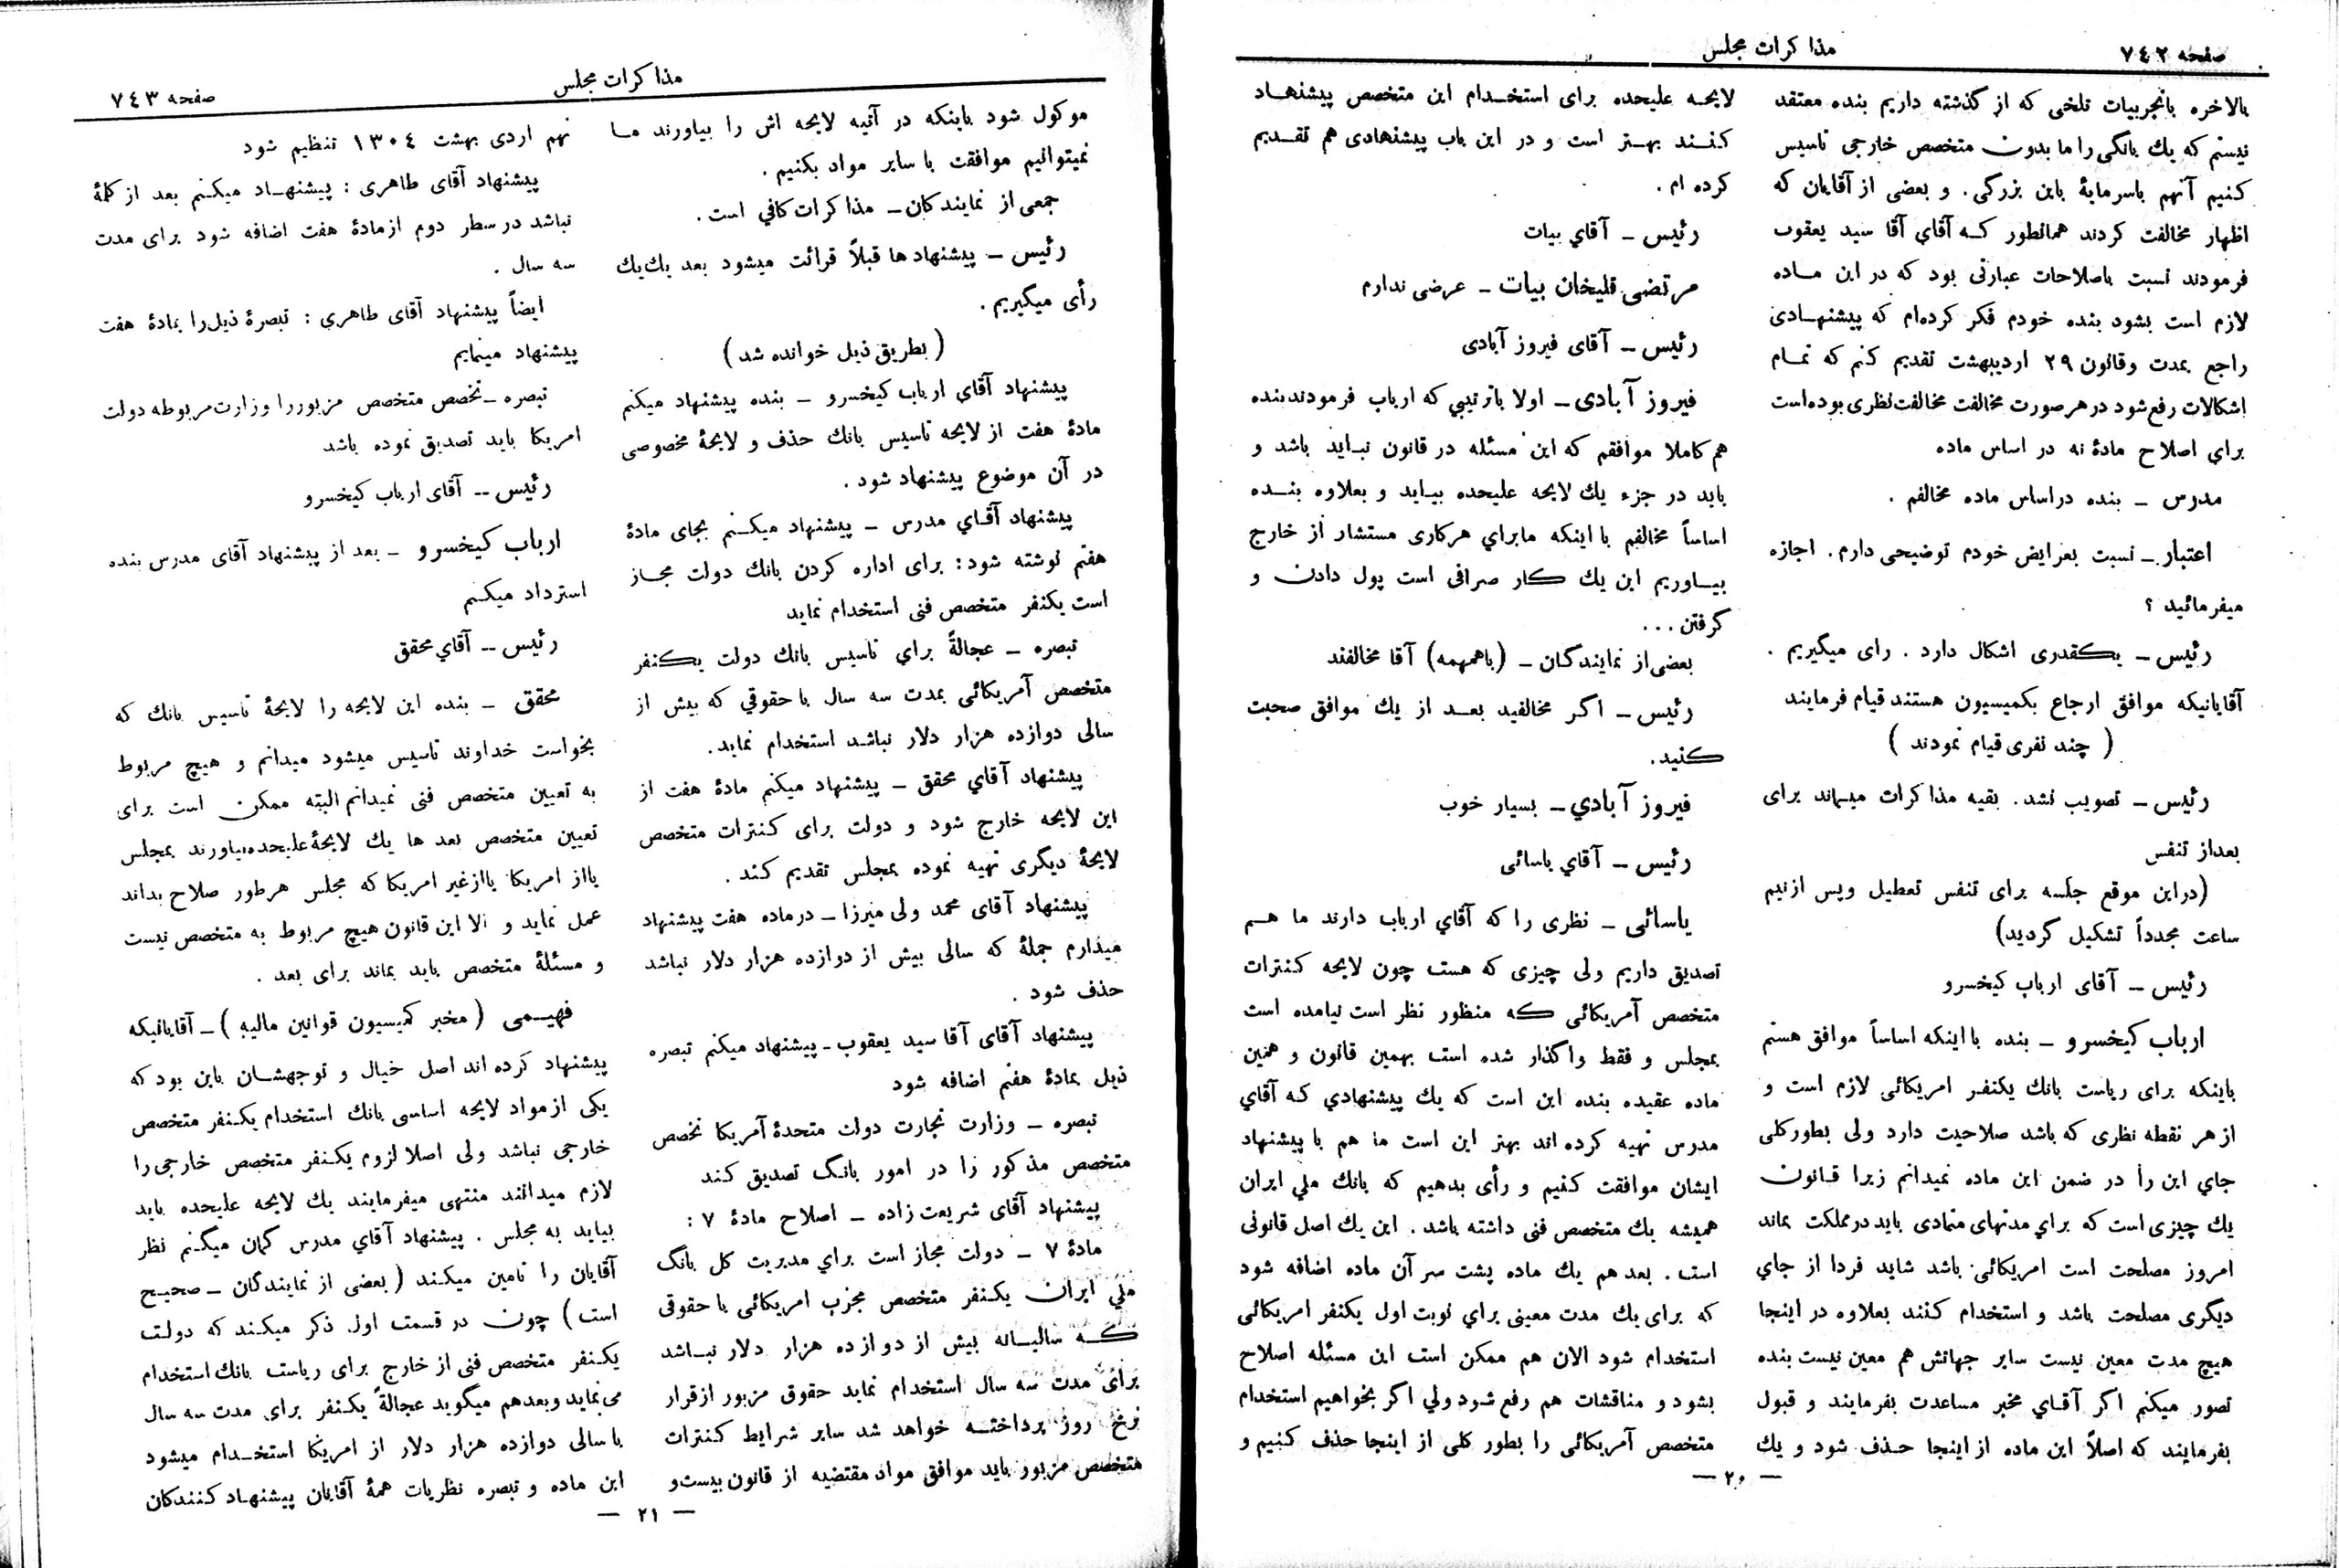 صفحه ۷٤۲
مذاکرات مجلس
بالاخره باتجربیات تلخی که از گذشته داریم بنده معتقد
نیستم که یك بانکی را ما بدون متخصص خارجی تاسیس
کنیم آنهم باسرمایهٔ باین بزرگی. و بعضی از آقایان که
اظهار مخالفت کردند همانطور کـه آقاي آقا سید یعقوب
فرمودند نسبت باصلاحات عبارتی بود که در این مـاده
لازم است بشود بنده خودم فکر کرده‌ام که پیشنهـادی
راجع بمدت وقانون ۲۹ اردیبهشت تقدیم کنم که تمـام
اشکالات رفع شود در هر صورت مخالفت مخالفت نظری بوده است
براي اصلاح مادهٔ نه در اساس ماده
مدرس ـ بنده در اساس ماده مخالفم .
اعتبار ـ نسبت بعرایض خودم توضیحی دارم. اجازه
میفرمائید ؟
رئیس ـ یکقدری اشکال دارد . رای میگیریم .
آقایانیکه موافق ارجاع بکمیسیون هستند قیام فرمایند
( چند نفری قیام نمودند )
رئیس ـ تصویب نشد. بقیه مذاکرات میماند برای
بعد از تنفس
(دراین موقع جلسه برای تنفس تعطیل وپس از نیم
ساعت مجدداً تشکیل گردید)
رئیس ـ آقای ارباب کیخسرو
ارباب کیخسرو ـ بنده بااینکه اساساً موافق هستم
باینکه برای ریاست بانك یکنفر امریکائی لازم است و
از هر نقطه نظری که باشد صلاحیت دارد ولی بطور کلی
جاي این را در ضمن این ماده نمیدانم زیرا قـانون
یك چیزی است که براي مدتهای متمادی باید در مملکت بماند
امروز مصلحت است امریکائی باشد شاید فردا از جاي
دیگری مصلحت باشد و استخدام کنند بعلاوه در اینجا
هیچ مدت معین نیست سایر جهاتش هم معین نیست بنده
تصور میکنم اگر آقـاي مخبر مساعدت بفرمایند و قبول
بفرمایند که اصلاً این ماده از اینجا حـذف شود و یك
لایحـه علیحده برای استخـدام این متخصص پیشنهـاد
کنـند بهـتر است و در این باب پیشنهادی هم تقـدیم
کرده ام .
رئیس ـ آقاي بیات
مرتضی قلیخان بیات ـ عرضی ندارم
رئیس ـ آقای فیروز آبادی
فیروز آبادی ـ اولا باترتیبي که ارباب فرمودند بنده
هم کاملا موافقم که این مسئله در قانون نبـاید باشد و
باید در جزء یك لایحه علیحده بیـاید و بعلاوه بنـده
اساساً مخالفم با اینکه مابراي هرکاری مستشار از خارج
بیـاوریم این یك کار صرافی است پول دادن و
گرفتن...
بعضی از نمایندگان ـ (باهمهمه) آقا مخالفند
رئیس ـ اگر مخالفید بعـد از یك موافق صحبت
کنید.
فیروز آبادي ـ بسیار خوب
رئیس ـ آقاي یاسائی
یاسائی ـ نظری را که آقاي ارباب دارند ما هـم
تصدیق داریم ولی چیزی که هست چون لایحه کنترات
متخصص آمریکائی که منظور نظر است نیامده است
بمجلس و فقط واگذار شده است بهمین قانون و همین
ماده عقیده بنده این است که یك پیشنهادي کـه آقاي
مدرس تهیه کرده اند بهتر این است ما هم با پیشنهاد
ایشان موافقت کنیم و رأی بدهیم که بانك ملي ایران
همیشه یك متخصص فنی داشته باشد . این یك اصل قانونی
است . بعد هم یك ماده پشت سر آن ماده اضافه شود
که برای یك مدت معینی براي نوبت اول یکنفر امریکائی
استخدام شود الان هم ممکن است این مسئله اصلاح
بشود و مناقشات هم رفع شود ولي اگر بخواهیم استخدام
متخصص آمریکائی را بطور کلی از اینجا حذف کنیم و
— ۲۰ —
مذاکرات مجلس
صفحه ۷٤۳
موکول شود باینکه در آتیه لایحه اش را بیاورند مـا
نمیتوانیم موافقت با سایر مواد بکنیم .
جمعی از نمایندگان ـ مذاکرات کافي است .
رئیس ـ پیشنهاد ها قبلاً قرائت میشود بعد یك‌یك
رأی میگیریم .
( بطریق ذیل خوانده شد )
پیشنهاد آقاي ارباب کیخسرو ـ بنده پیشنهاد میکنم
مادهٔ هفت از لایحه تاسیس بانك حذف و لایحهٔ مخصوصی
در آن موضوع پیشنهاد شود .
پیشنهاد آقـاي مدرس ـ پیشنهاد میکـنم بجای مادهٔ
هفتم نوشته شود: برای اداره کردن بانك دولت مجـاز
است یکنفر متخصص فنی استخدام نماید
تبصره ـ عجالةً براي تاسیس بانك دولت یکنفر
متخصص آمریکائی بمدت سه سال با حقوقي که بیش از
سالی دوازده هزار دلار نباشد استخدام نماید.
پیشنهاد آقاي محقق ـ پیشنهاد میکنم مادهٔ هفت از
این لایحه خارج شود و دولت برای کنترات متخصص
لایحهٔ دیگری تهیه نموده بمجلس تقدیم کند .
پیشنهاد آقای محمد ولی میرزا ـ درماده هفت پیشنهاد
میدارم جملهٔ که سالی بیش از دوازده هزار دلار نباشد
حذف شود .
پیشنهاد آقای آقا سید یعقوب ـ پیشنهاد میکنم تبصره
ذیل بمادهٔ هفتم اضافه شود
تبصره ـ وزارت تجارت دولت متحدهٔ آمریکا تخصص
متخصص مذکور را در امور بانگ تصدیق کند
پیشنهاد آقای شریعت زاده ـ اصلاح مادهٔ ۷ :
مادهٔ ۷ ـ دولت مجاز است براي مدیریت کل بانگ
ملي ایران یکنفر متخصص مجرب امریکائی با حقوقی
کـه سالیـانه بیش از دوازده هزار دلار نبـاشد
برای مدت سه سال استخدام نماید حقوق مزبور از قرار
نرخ روز پرداختـه خواهد شد سایر شرایط کنترات
متخصص مزبور باید موافق مواد مقتضیه از قانون بیست و
نهم اردی بهشت ۱۳۰٤ تنظیم شود
پیشنهاد آقای طاهری : پیشنهـاد میکـنم بعد از کلمهٔ
نباشد در سطر دوم از مادهٔ هفت اضافه شود برای مدت
سه سال .
ایضاً پیشنهاد آقای طاهري : تبصرهٔ ذیل را بمادهٔ هفت
پیشنهاد مینمایم
تبصره ـ تخصص متخصص مزبور را وزارت مربوطه دولت
امریکا باید تصدیق نموده باشد
رئیس ـ آقای ارباب کیخسرو
ارباب کیخسرو ـ بعد از پیشنهاد آقای مدرس بنده
استرداد میکنم
رئیس ـ آقاي محقق
محقق ـ بنده این لایحه را لایحهٔ تاسیس بانك که
بخواست خداوند تاسیس میشود میدانم و هیچ مربوط
به تعیین متخصص فنی نمیدانم البته ممکن است برای
تعیین متخصص بعد ها یك لایحهٔ علیحده بیاورند بمجلس
یااز امریکا یااز غیر امریکا که مجلس هرطور صلاح بداند
عمل نماید و الا این قانون هیچ مربوط به متخصص نیست
و مسئلهٔ متخصص باید بماند برای بعد .
فهیـمی ( مخبر کمیسیون قوانین مالیه ) ـ آقایانیکه
پیشنهاد کرده اند اصل خیال و توجهشـان باین بود که
یکی از مواد لایحه اساسی بانك استخدام یکـنفر متخصص
خارجی نباشد ولی اصلا لزوم یکـنفر متخصص خارجی را
لازم میدانند منتهی میفرمایند یك لایحه علیحده باید
بیاید به مجلس . پیشنهاد آقاي مدرس گمان میکـنم نظر
آقایان را تامین میکند ( بعضی از نمایندگان ـ صحیـح
است ) چون در قسمت اول ذکر میکـند که دولت
یکـنفر متخصص فنی از خارج برای ریاست بانك استخدام
می نماید و بعدهم میگوید عجالةً یکنفر برای مدت سه سال
با سالی دوازده هزار دلار از امریکا استخـدام میشود
این ماده و تبصره نظریات همهٔ آقایان پیشنهاد کنندگان
— ۲۱ —